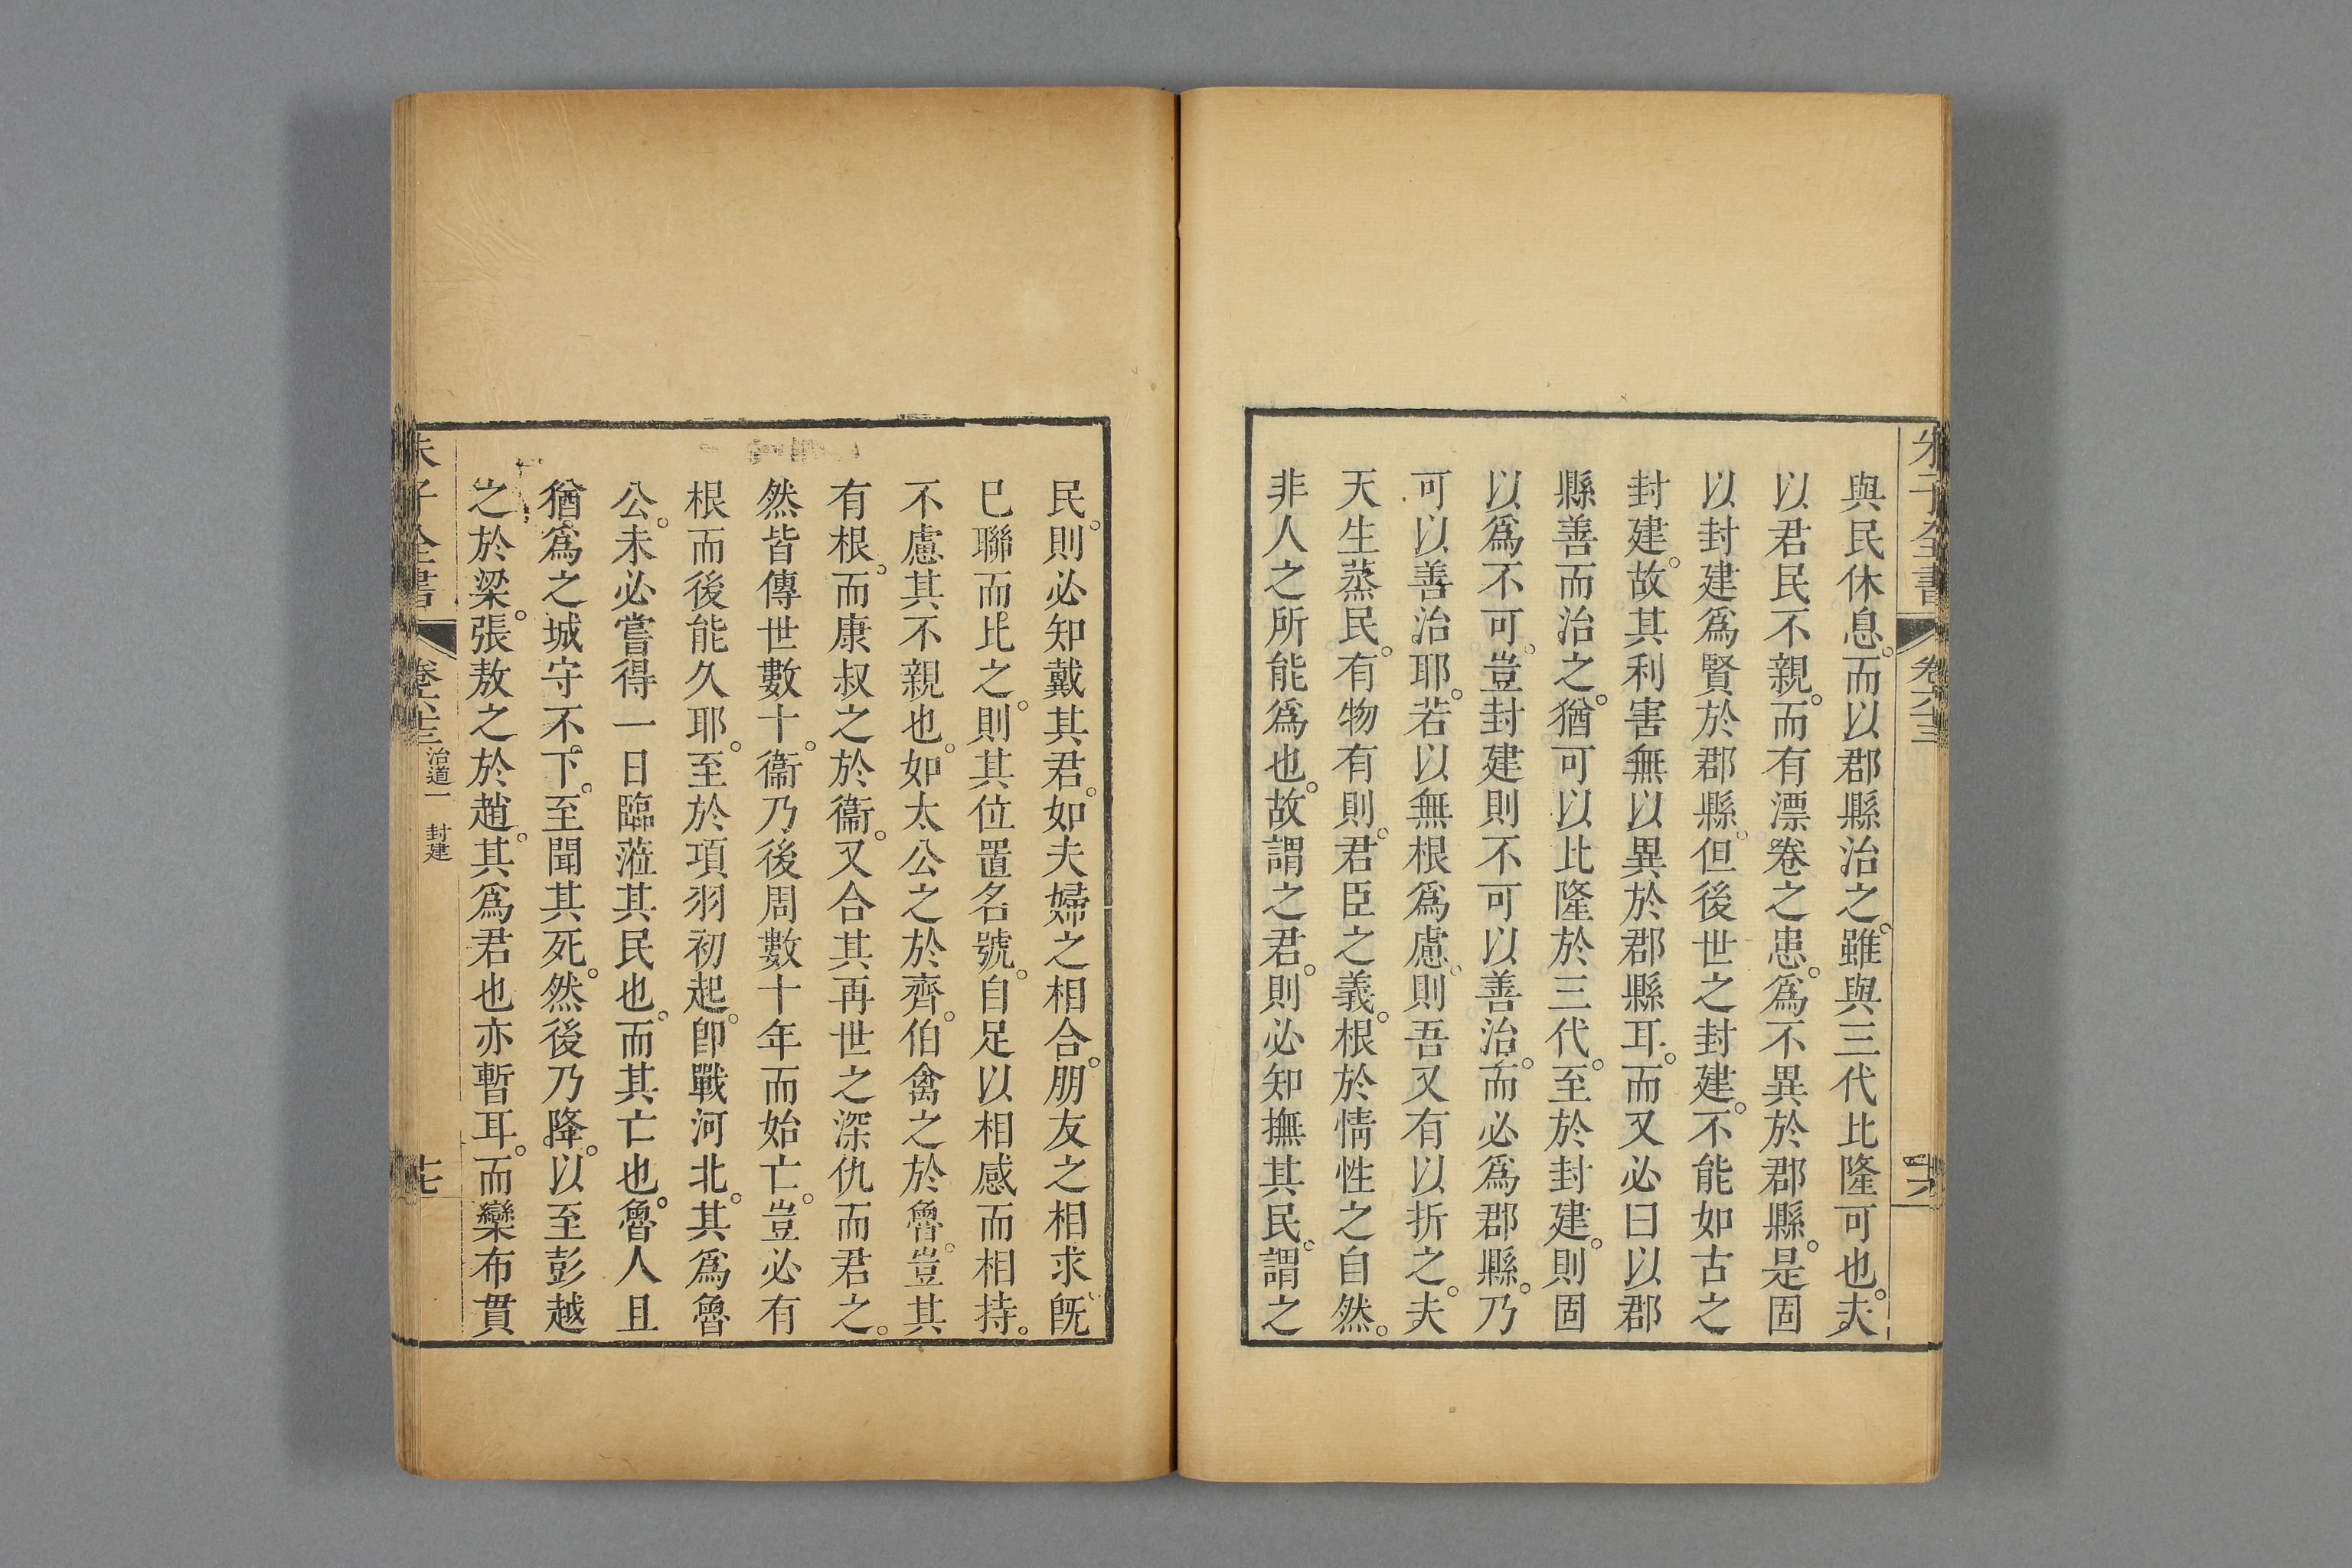 朱子全書 卷六十三 十六
與民休息。而以郡縣治之。雖與三代比隆可也。夫
以君民不親。而有漂卷之患。爲不異於郡縣。是固
以封建爲賢於郡縣。但後世之封建。不能如古之
封建。故其利害無以異於郡縣耳。而又必曰以郡
縣善而治之。猶可以比隆於三代。至於封建。則固
以爲不可。豈封建則不可以善治。而必爲郡縣。乃
可以善治耶。若以無根爲慮。則吾又有以折之。夫
天生蒸民。有物有則。君臣之義。根於情性之自然。
非人之所能爲也。故謂之君。則必知撫其民。謂之
民。則必知戴其君。如夫婦之相合。朋友之相求。旣
已聯而比之。則其位置名號。自足以相感而相持。
不慮其不親也。如太公之於齊。伯禽之於魯。豈其
有根。而康叔之於衞。又合其再世之深仇而君之。
然皆傳世數十。衞乃後周數十年而始亡。豈必有
根而後能久耶。至於項羽初起。卽戰河北。其爲魯
公。未必嘗得一日臨蒞其民也。而其亡也。魯人且
猶爲之城守不下。至聞其死。然後乃降。以至彭越
之於梁。張敖之於趙。其爲君也亦暫耳。而欒布貫
朱子全書 卷六十三 治道一 封建 十七